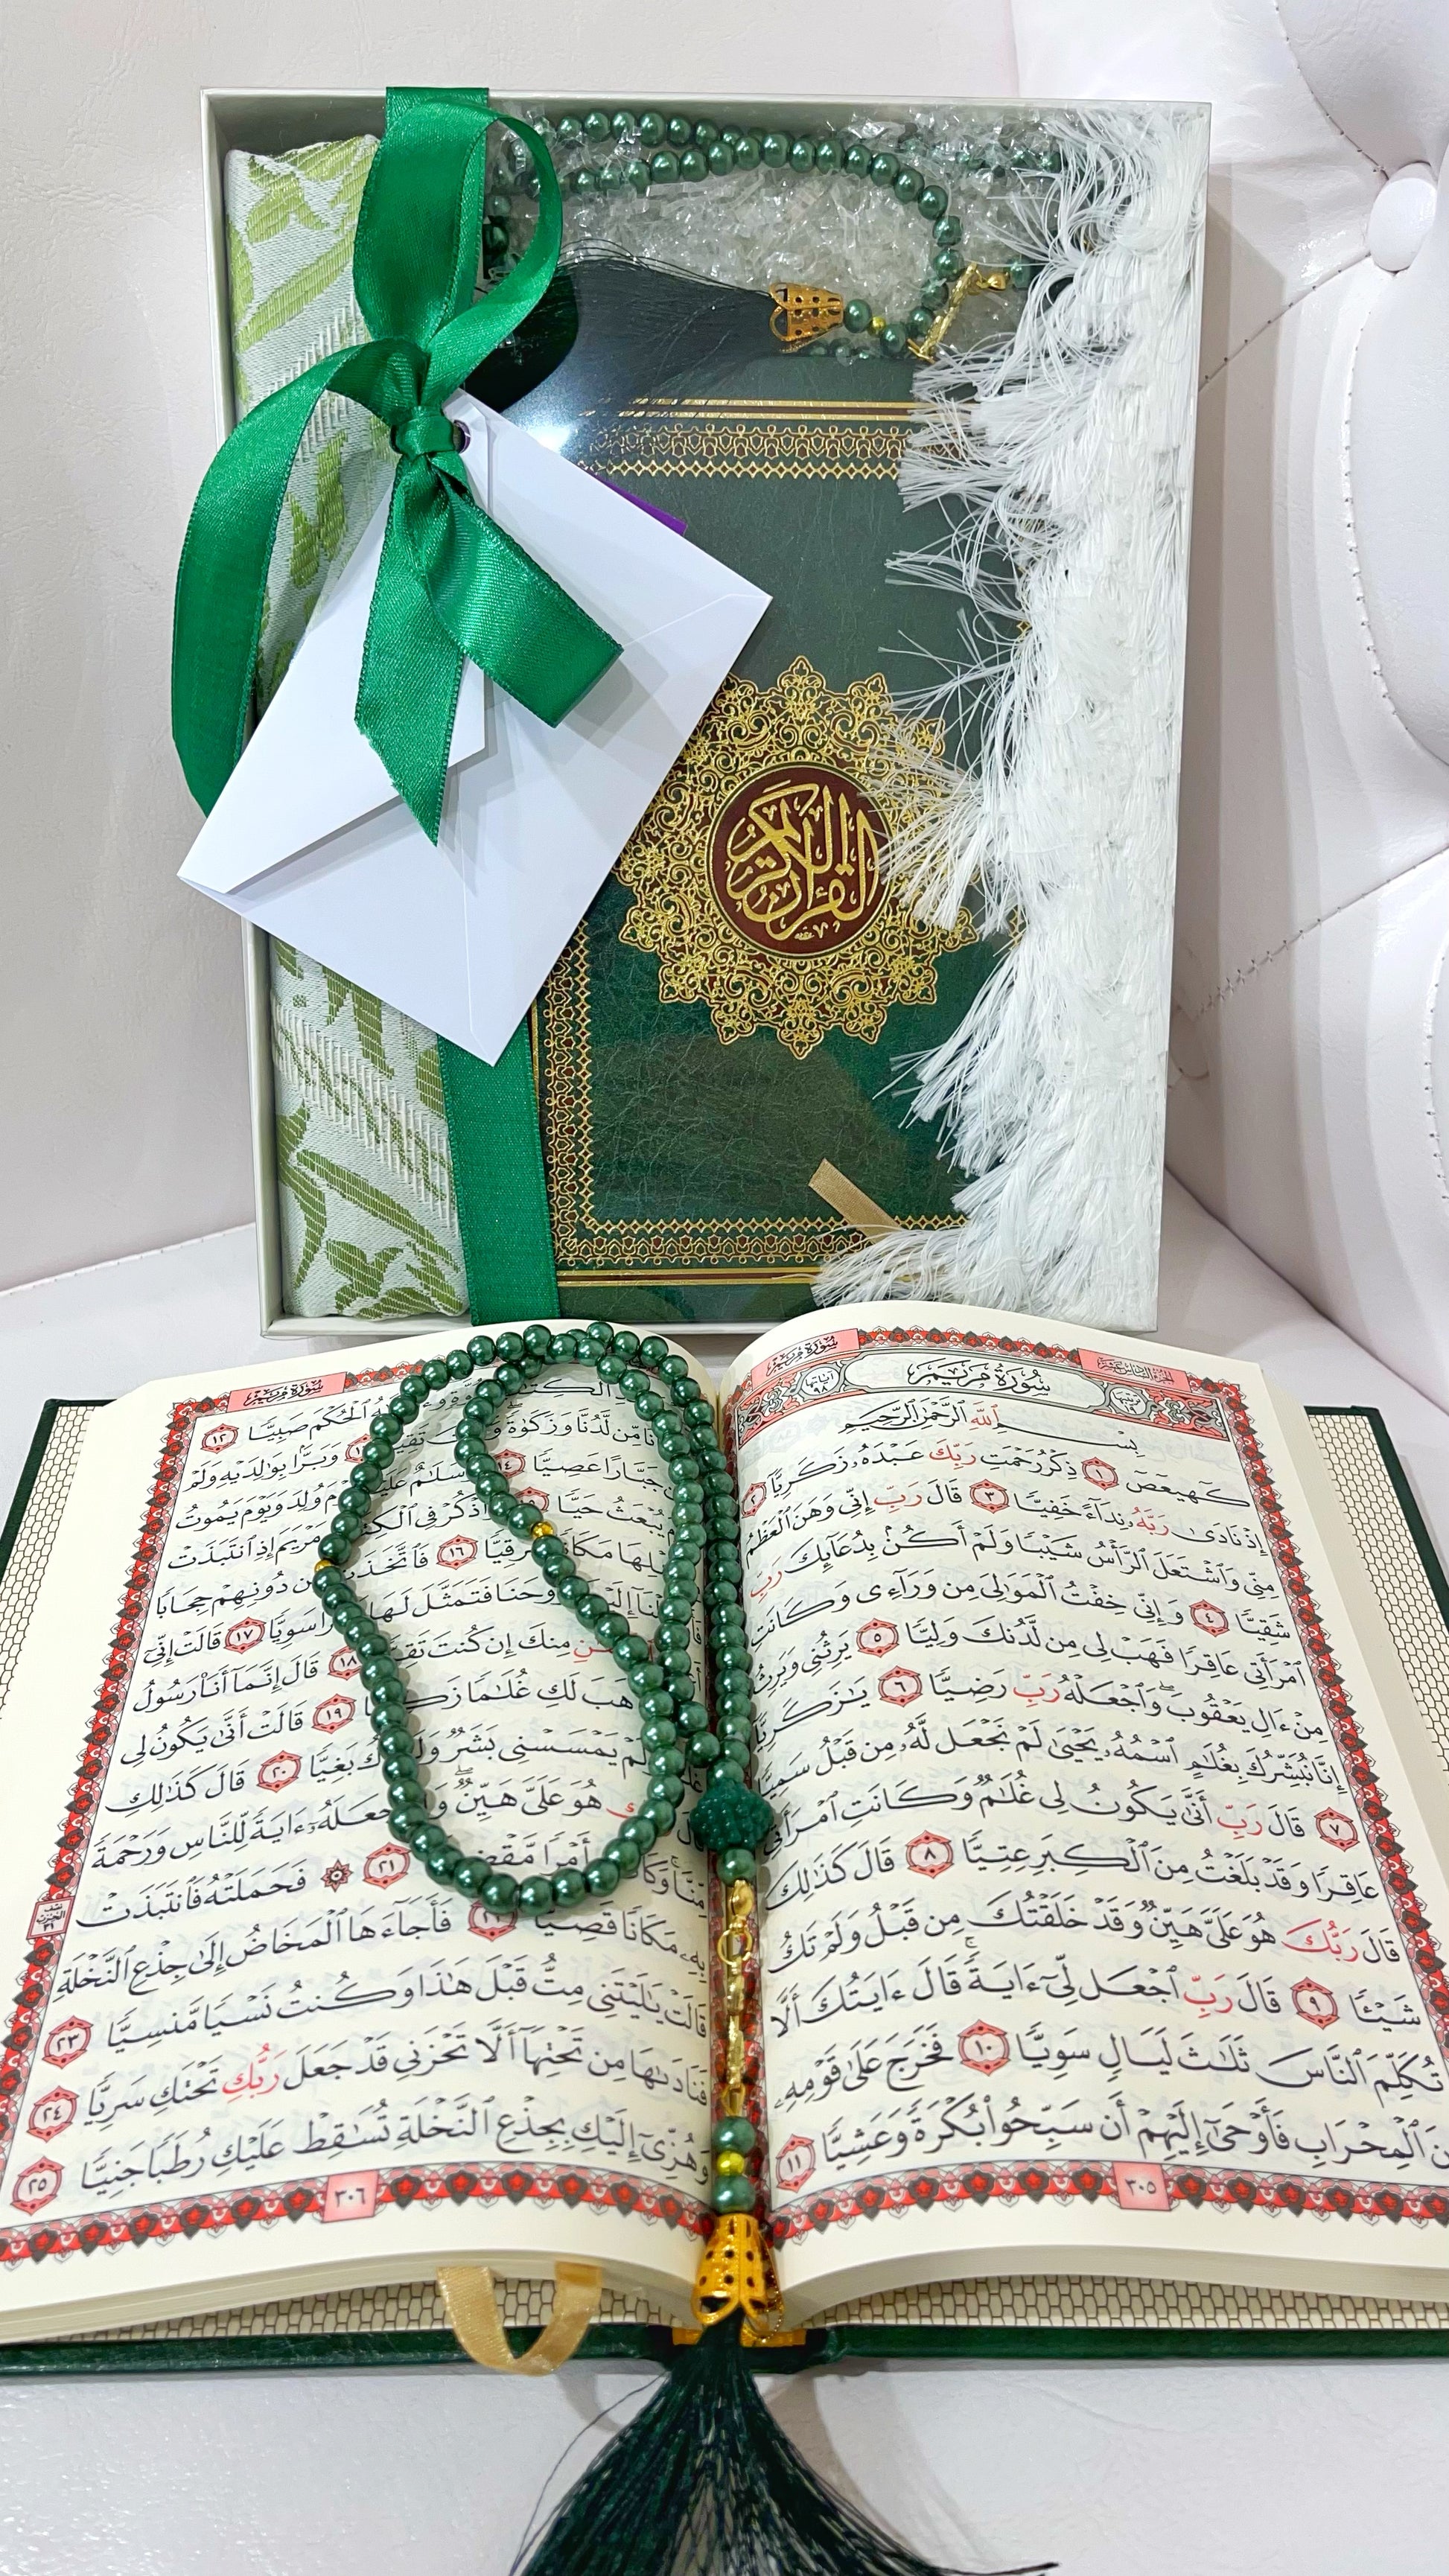 القرآن الكريم
سورة مريم
الجزء السادس عشر
سُورَةُ مَرْيَمَ
آياتها ٩٨
بِسْمِ ٱللَّهِ ٱلرَّحْمَٰنِ ٱلرَّحِيمِ
كٓهيعٓصٓ ١ ذِكْرُ رَحْمَتِ رَبِّكَ عَبْدَهُۥ زَكَرِيَّآ ٢
إِذْ نَادَىٰ رَبَّهُۥ نِدَآءً خَفِيًّا ٣ قَالَ رَبِّ إِنِّى وَهَنَ ٱلْعَظْمُ
مِنِّى وَٱشْتَعَلَ ٱلرَّأْسُ شَيْبًا وَلَمْ أَكُنۢ بِدُعَآئِكَ رَبِّ
شَقِيًّا ٤ وَإِنِّى خِفْتُ ٱلْمَوَٰلِىَ مِن وَرَآءِى وَكَانَتِ
ٱمْرَأَتِى عَاقِرًا فَهَبْ لِى مِن لَّدُنكَ وَلِيًّا ٥ يَرِثُنِى وَيَرِثُ
مِنْ ءَالِ يَعْقُوبَ ۖ وَٱجْعَلْهُ رَبِّ رَضِيًّا ٦ يَٰزَكَرِيَّآ
إِنَّا نُبَشِّرُكَ بِغُلَٰمٍ ٱسْمُهُۥ يَحْيَىٰ لَمْ نَجْعَل لَّهُۥ مِن قَبْلُ سَمِيًّا
٧ قَالَ رَبِّ أَنَّىٰ يَكُونُ لِى غُلَٰمٌ وَكَانَتِ ٱمْرَأَتِى
عَاقِرًا وَقَدْ بَلَغْتُ مِنَ ٱلْكِبَرِ عِتِيًّا ٨ قَالَ كَذَٰلِكَ
قَالَ رَبُّكَ هُوَ عَلَىَّ هَيِّنٌ وَقَدْ خَلَقْتُكَ مِن قَبْلُ وَلَمْ تَكُ
شَيْـًٔا ٩ قَالَ رَبِّ ٱجْعَل لِّىٓ ءَايَةً ۚ قَالَ ءَايَتُكَ أَلَّا
تُكَلِّمَ ٱلنَّاسَ ثَلَٰثَ لَيَالٍ سَوِيًّا ١٠ فَخَرَجَ عَلَىٰ قَوْمِهِۦ
مِنَ ٱلْمِحْرَابِ فَأَوْحَىٰٓ إِلَيْهِمْ أَن سَبِّحُوا۟ بُكْرَةً وَعَشِيًّا ١١
٣٠٥
سورة مريم
ٱلْكِتَٰبَ ٱلْحُكْمَ صَبِيًّا ١٢
مِّن لَّدُنَّا وَزَكَوٰةً ۖ وَبَرًّۢا بِوَٰلِدَيْهِ وَلَمْ
جَبَّارًا عَصِيًّا ١٤ وَسَلَٰمٌ عَلَيْهِ يَوْمَ وُلِدَ وَيَوْمَ يَمُوتُ
يُبْعَثُ حَيًّا ١٥ وَٱذْكُرْ فِى ٱلْكِتَٰبِ مَرْيَمَ إِذِ ٱنتَبَذَتْ
أَهْلِهَا مَكَانًا شَرْقِيًّا ١٦ فَٱتَّخَذَتْ مِن دُونِهِمْ حِجَابًا
رُوحَنَا فَتَمَثَّلَ لَهَا بَشَرًا سَوِيًّا ١٧ قَالَتْ إِنِّىٓ
مِنكَ إِن كُنتَ تَقِيًّا ١٨ قَالَ إِنَّمَآ أَنَا۠ رَسُولُ
لِأَهَبَ لَكِ غُلَٰمًا زَكِيًّا ١٩ قَالَتْ أَنَّىٰ يَكُونُ لِى
وَلَمْ يَمْسَسْنِى بَشَرٌ وَلَمْ أَكُ بَغِيًّا ٢٠ قَالَ كَذَٰلِكِ
هُوَ عَلَىَّ هَيِّنٌ ۖ وَلِنَجْعَلَهُۥٓ ءَايَةً لِّلنَّاسِ وَرَحْمَةً
مِّنَّا ۚ وَكَانَ أَمْرًا مَّقْضِيًّا ٢١ ۞ فَحَمَلَتْهُ فَٱنتَبَذَتْ
بِهِۦ مَكَانًا قَصِيًّا ٢٢ فَأَجَآءَهَا ٱلْمَخَاضُ إِلَىٰ جِذْعِ ٱلنَّخْلَةِ
قَالَتْ يَٰلَيْتَنِى مِتُّ قَبْلَ هَٰذَا وَكُنتُ نَسْيًا مَّنسِيًّا ٢٣
فَنَادَىٰهَا مِن تَحْتِهَآ أَلَّا تَحْزَنِى قَدْ جَعَلَ رَبُّكِ تَحْتَكِ سَرِيًّا ٢٤
وَهُزِّىٓ إِلَيْكِ بِجِذْعِ ٱلنَّخْلَةِ تُسَٰقِطْ عَلَيْكِ رُطَبًا جَنِيًّا ٢٥
٣٠٦